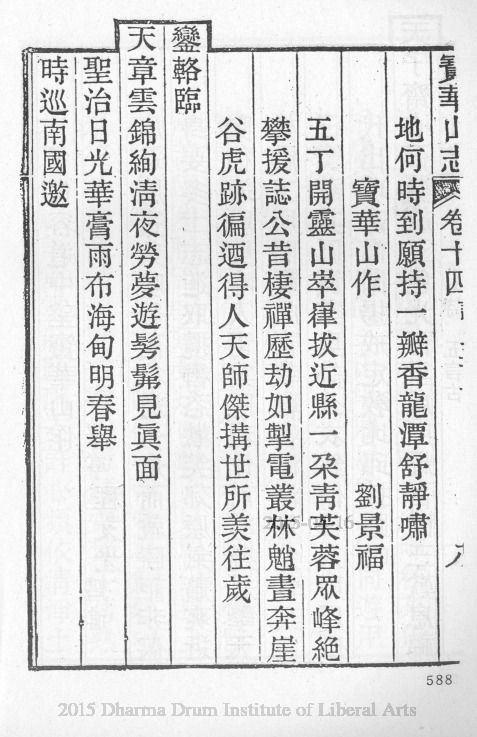 寶華山志 卷十四
地何時到願持一瓣香龍潭舒靜嘯
寶華山作 劉景福
五丁開靈山崒律拔近縣一朶靑芙蓉眾峰絕
攀援誌公昔棲禪歷劫如掣電叢林魈晝奔崖
谷虎跡徧迺得人天師傑搆世所羡往歲
鑾輅臨
天章雲錦絢淸夜勞夢遊髣髴見眞面
聖治日光華膏雨布海甸明春舉
時巡南國邀
588
2015 Dharma Drum Institute of Liberal Arts